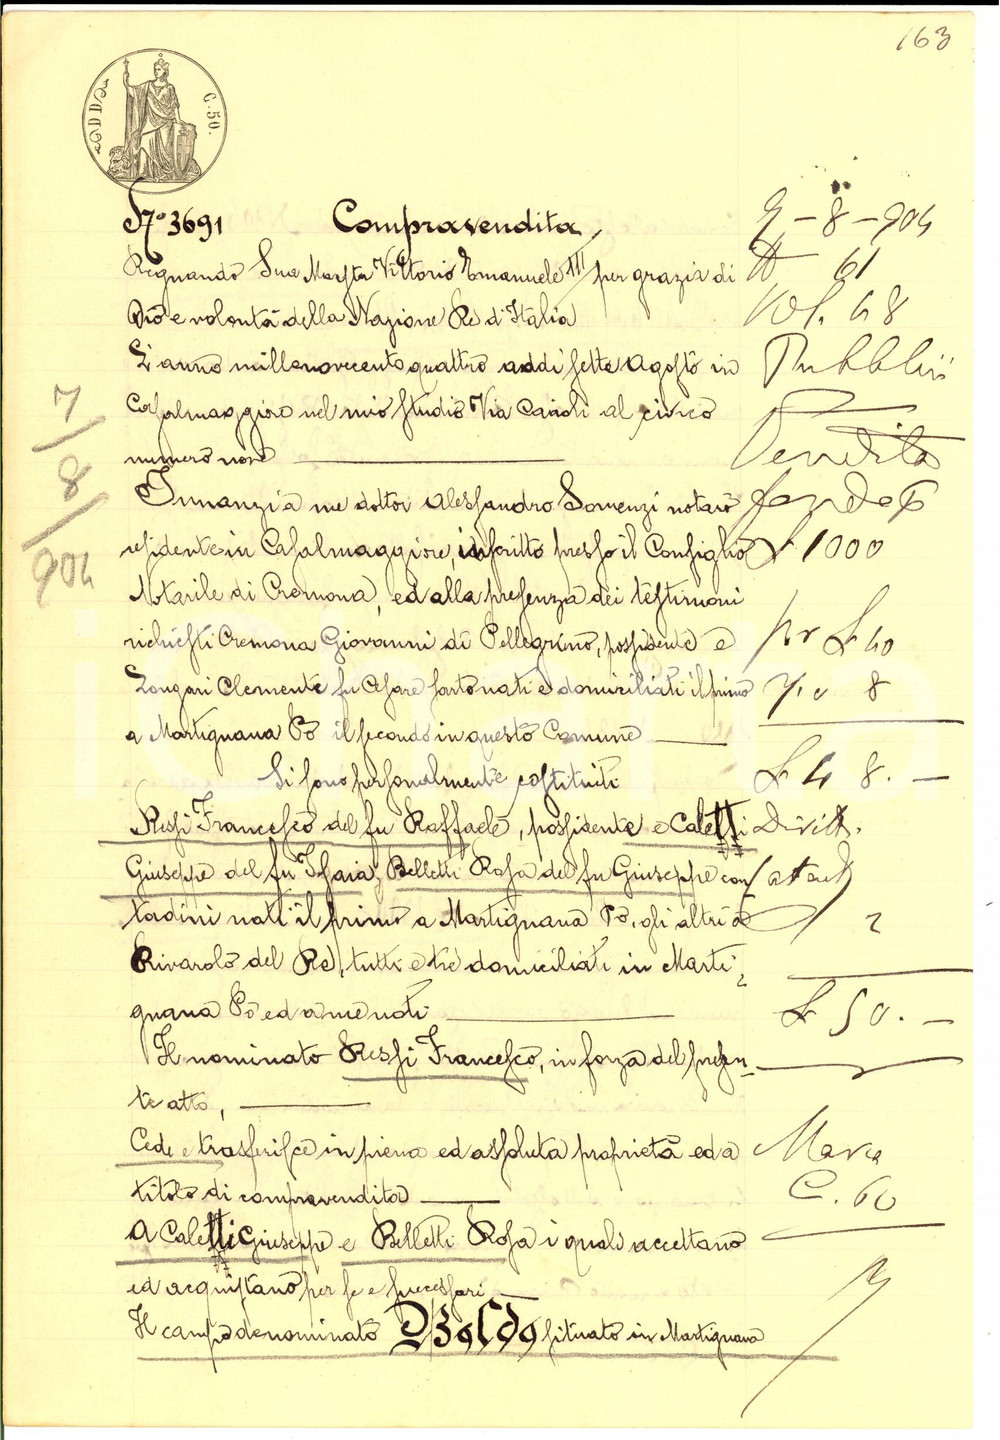 163
C. 50.
N° 3691 Compravendita
Regnando Sua Maestà Vittorio Emanuele III per grazia di
Dio e volontà della Nazione Re d'Italia
L'anno millenovecentoquattro addì sette Agosto in
Casalmaggiore nel mio studio Via Cairoli al civico
numero nove
Innanzi a me dottor Alessandro Somenzi notaro
residente in Casalmaggiore, inscritto presso il Consiglio
Notarile di Cremona, ed alla presenza dei testimoni
richiesti Cremona Giovanni di Pellegrino, possidente e
Longari Clemente fu Cesare sarto nati e domiciliati il primo
a Martignana Po il secondo in questo Comune
Si sono personalmente costituiti
Ressi Francesco del fu Raffaele, possidente e Caletti
Giuseppe del fu Isaia, Belletti Rosa del fu Giuseppe con
tadini nati il primo a Martignana Po, gli altri a
Rivarolo del Re, tutti e tre domiciliati in Marti
gnana Po ed a me noti
Il nominato Ressi Francesco, in forza del presen
te atto,
Cede e trasferisce in piena ed assoluta proprietà ed a
titolo di compravendita
A Caletti Giuseppe e Belletti Rosa i quali accettano
ed acquistano per sé e successori
Il campo denominato situato in Martignana
7/8/904
9-8-904
N 61
Vol. 48
Pubblici
Vendita
£ 1000
pr £ 40
8
£ 48.-
Diritt.
2
£ 50.-
Marca
C. 60